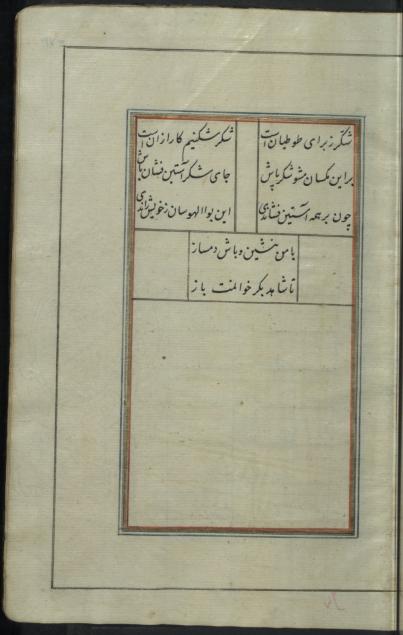 شکر ز برای طوطیان است شکر شکنیم کار از آن است
بر این مکسان مشو شکر پاش جای شکر آستین فشان باش
چون بر همه آستین فشاندی این بوالهوسان ز خویش راندی
با من بنشین و باش دمساز
تا شاهد بکر خوانمت باز